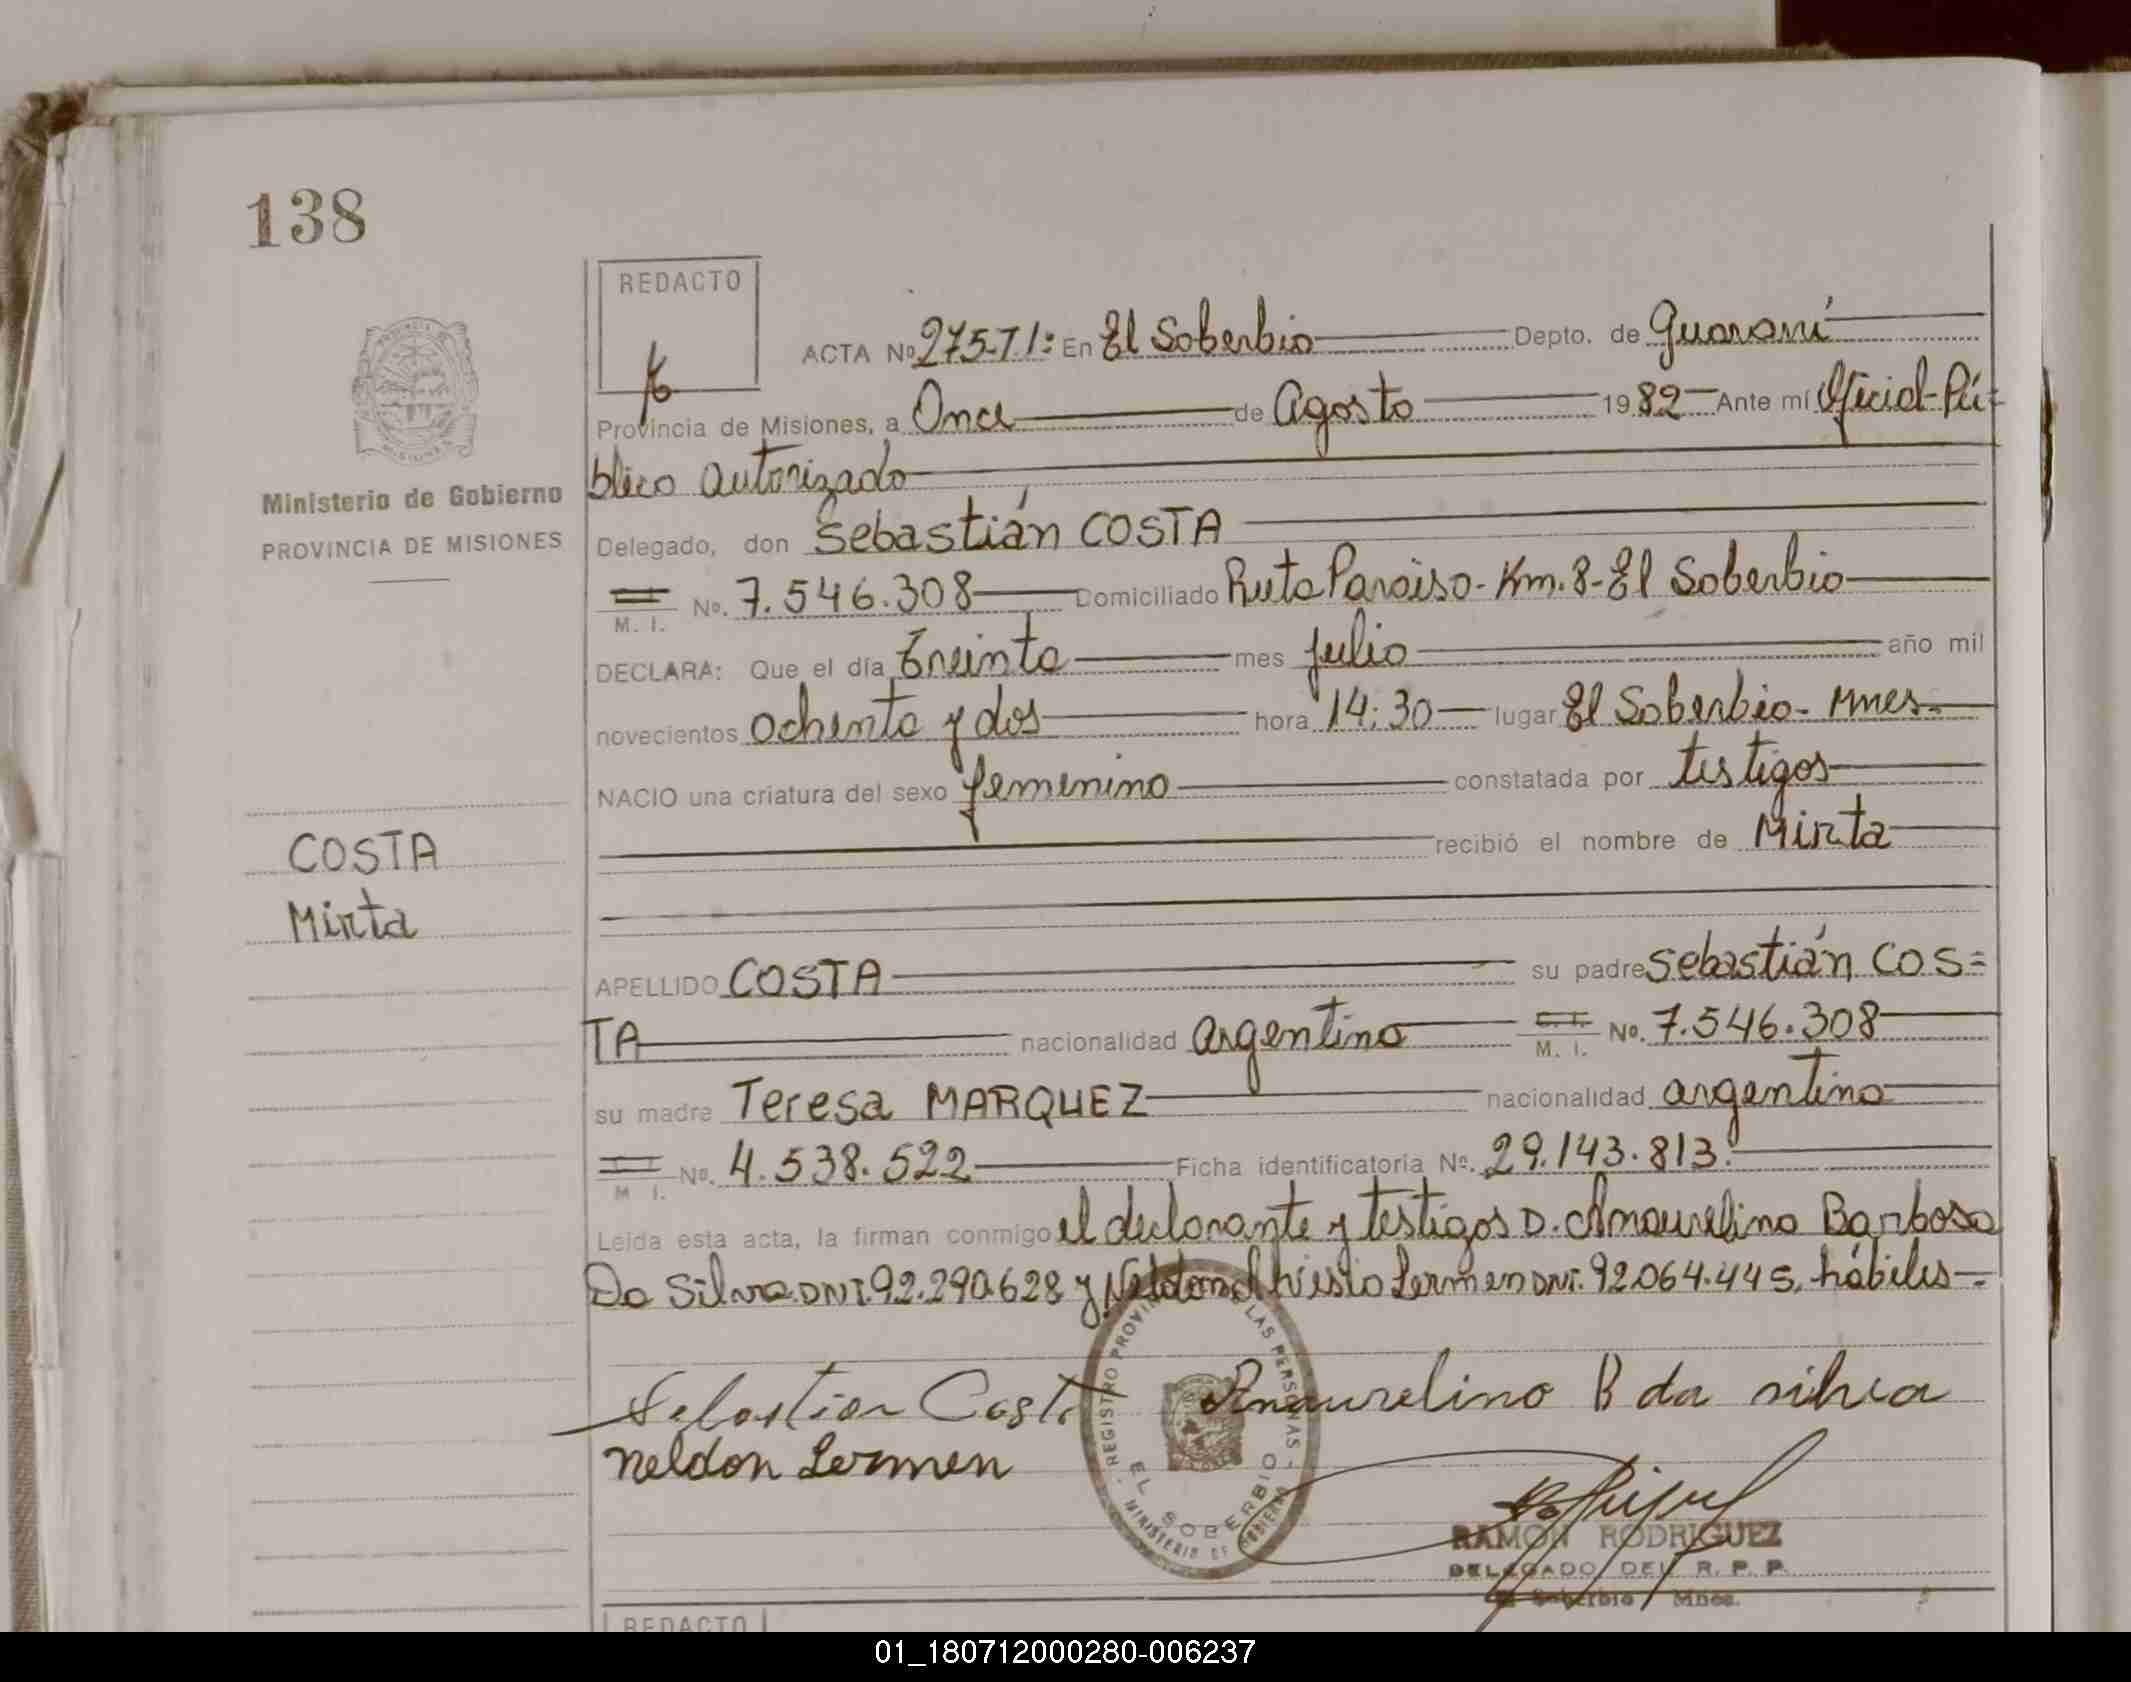 138
REDACTO
ACTA Nº 275-T I: En El Soberbio Depto. de Guaraní
Provincia de Misiones, a Once de Agosto 1982 Ante mí Oficial Pú-
blico autorizado
Ministerio de Gobierno
PROVINCIA DE MISIONES
Delegado, don Sebastián COSTA
M. I. No. 7.546.308 Domiciliado Ruta Paraiso - Km. 8 - El Soberbio
DECLARA: Que el día Treinta mes Julio año mil
novecientos ochenta y dos hora 14:30 lugar El Soberbio - Mnes.
NACIO una criatura del sexo femenino constatada por testigos
recibió el nombre de Mirta
COSTA
Mirta
APELLIDO COSTA su padre Sebastián COS=
TA nacionalidad argentino C. I. M. I. No. 7.546.308
su madre Teresa MARQUEZ nacionalidad argentina
M I. No. 4.538.522 Ficha identificatoria Nº. 29.143.813.
Leída esta acta, la firman conmigo el declarante y testigos D. Amaurelino Barbosa
Da Silva DNI. 92.290.628 y Neldon Lermen DNI. 92.064.445, hábiles
Sebastian Costa Amaurelino B da silva
neldon Lermen
REGISTRO PROVINCIAL DE LAS PERSONAS
EL SOBERBIO
MINISTERIO DE GOBIERNO
RAMON RODRIGUEZ
DELEGADO DEL R. P. P.
El Soberbio Mnes.
REDACTO
01_180712000280-006237